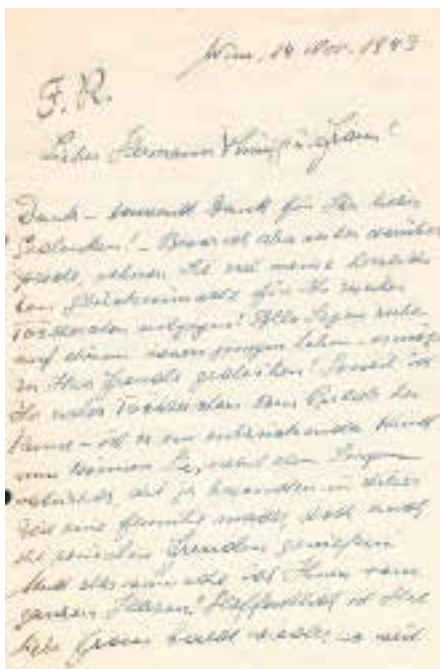 Wien, 14 Nov. 1943
F. R.
Lieber Hermann
Dank – tausend Dank für Ihr liebes
Gedenken! – Bevor ich aber weiter darüber
rede, nehmen Sie erst meine herzlich
sten Glückwünsche für Ihr zweites
Töchterchen entgegen! Aller Segen ruhe
auf diesem neuen jungen Leben
zu Ihrer Freude gedeihen! Soweit ich
Ihr erstes Töchterchen vom Bilde her
kenne – ist es ein entzückendes Kind
und können Sie, nebst den Sorgen
die ja besonders in dieser
Zeit eine Familie macht, doch auch
die reinsten Freuden genießen
Und das wünsche ich Ihnen vom
ganzen Herzen! Hoffentlich ist Ihre
liebe Frau bald wieder so weit